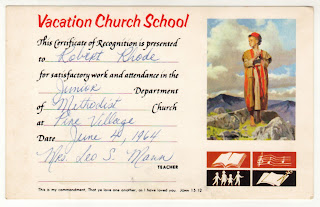 Vacation Church School
This Certificate of Recognition is presented
to Robert Rhode
for satisfactory work and attendance in the
Junior Department
of Methodist Church
at Pine Village
Date June 4, 1964
Mrs. Leo S. Mann
TEACHER
This is my commandment, That ye love one another, as I have loved you. John 15:12